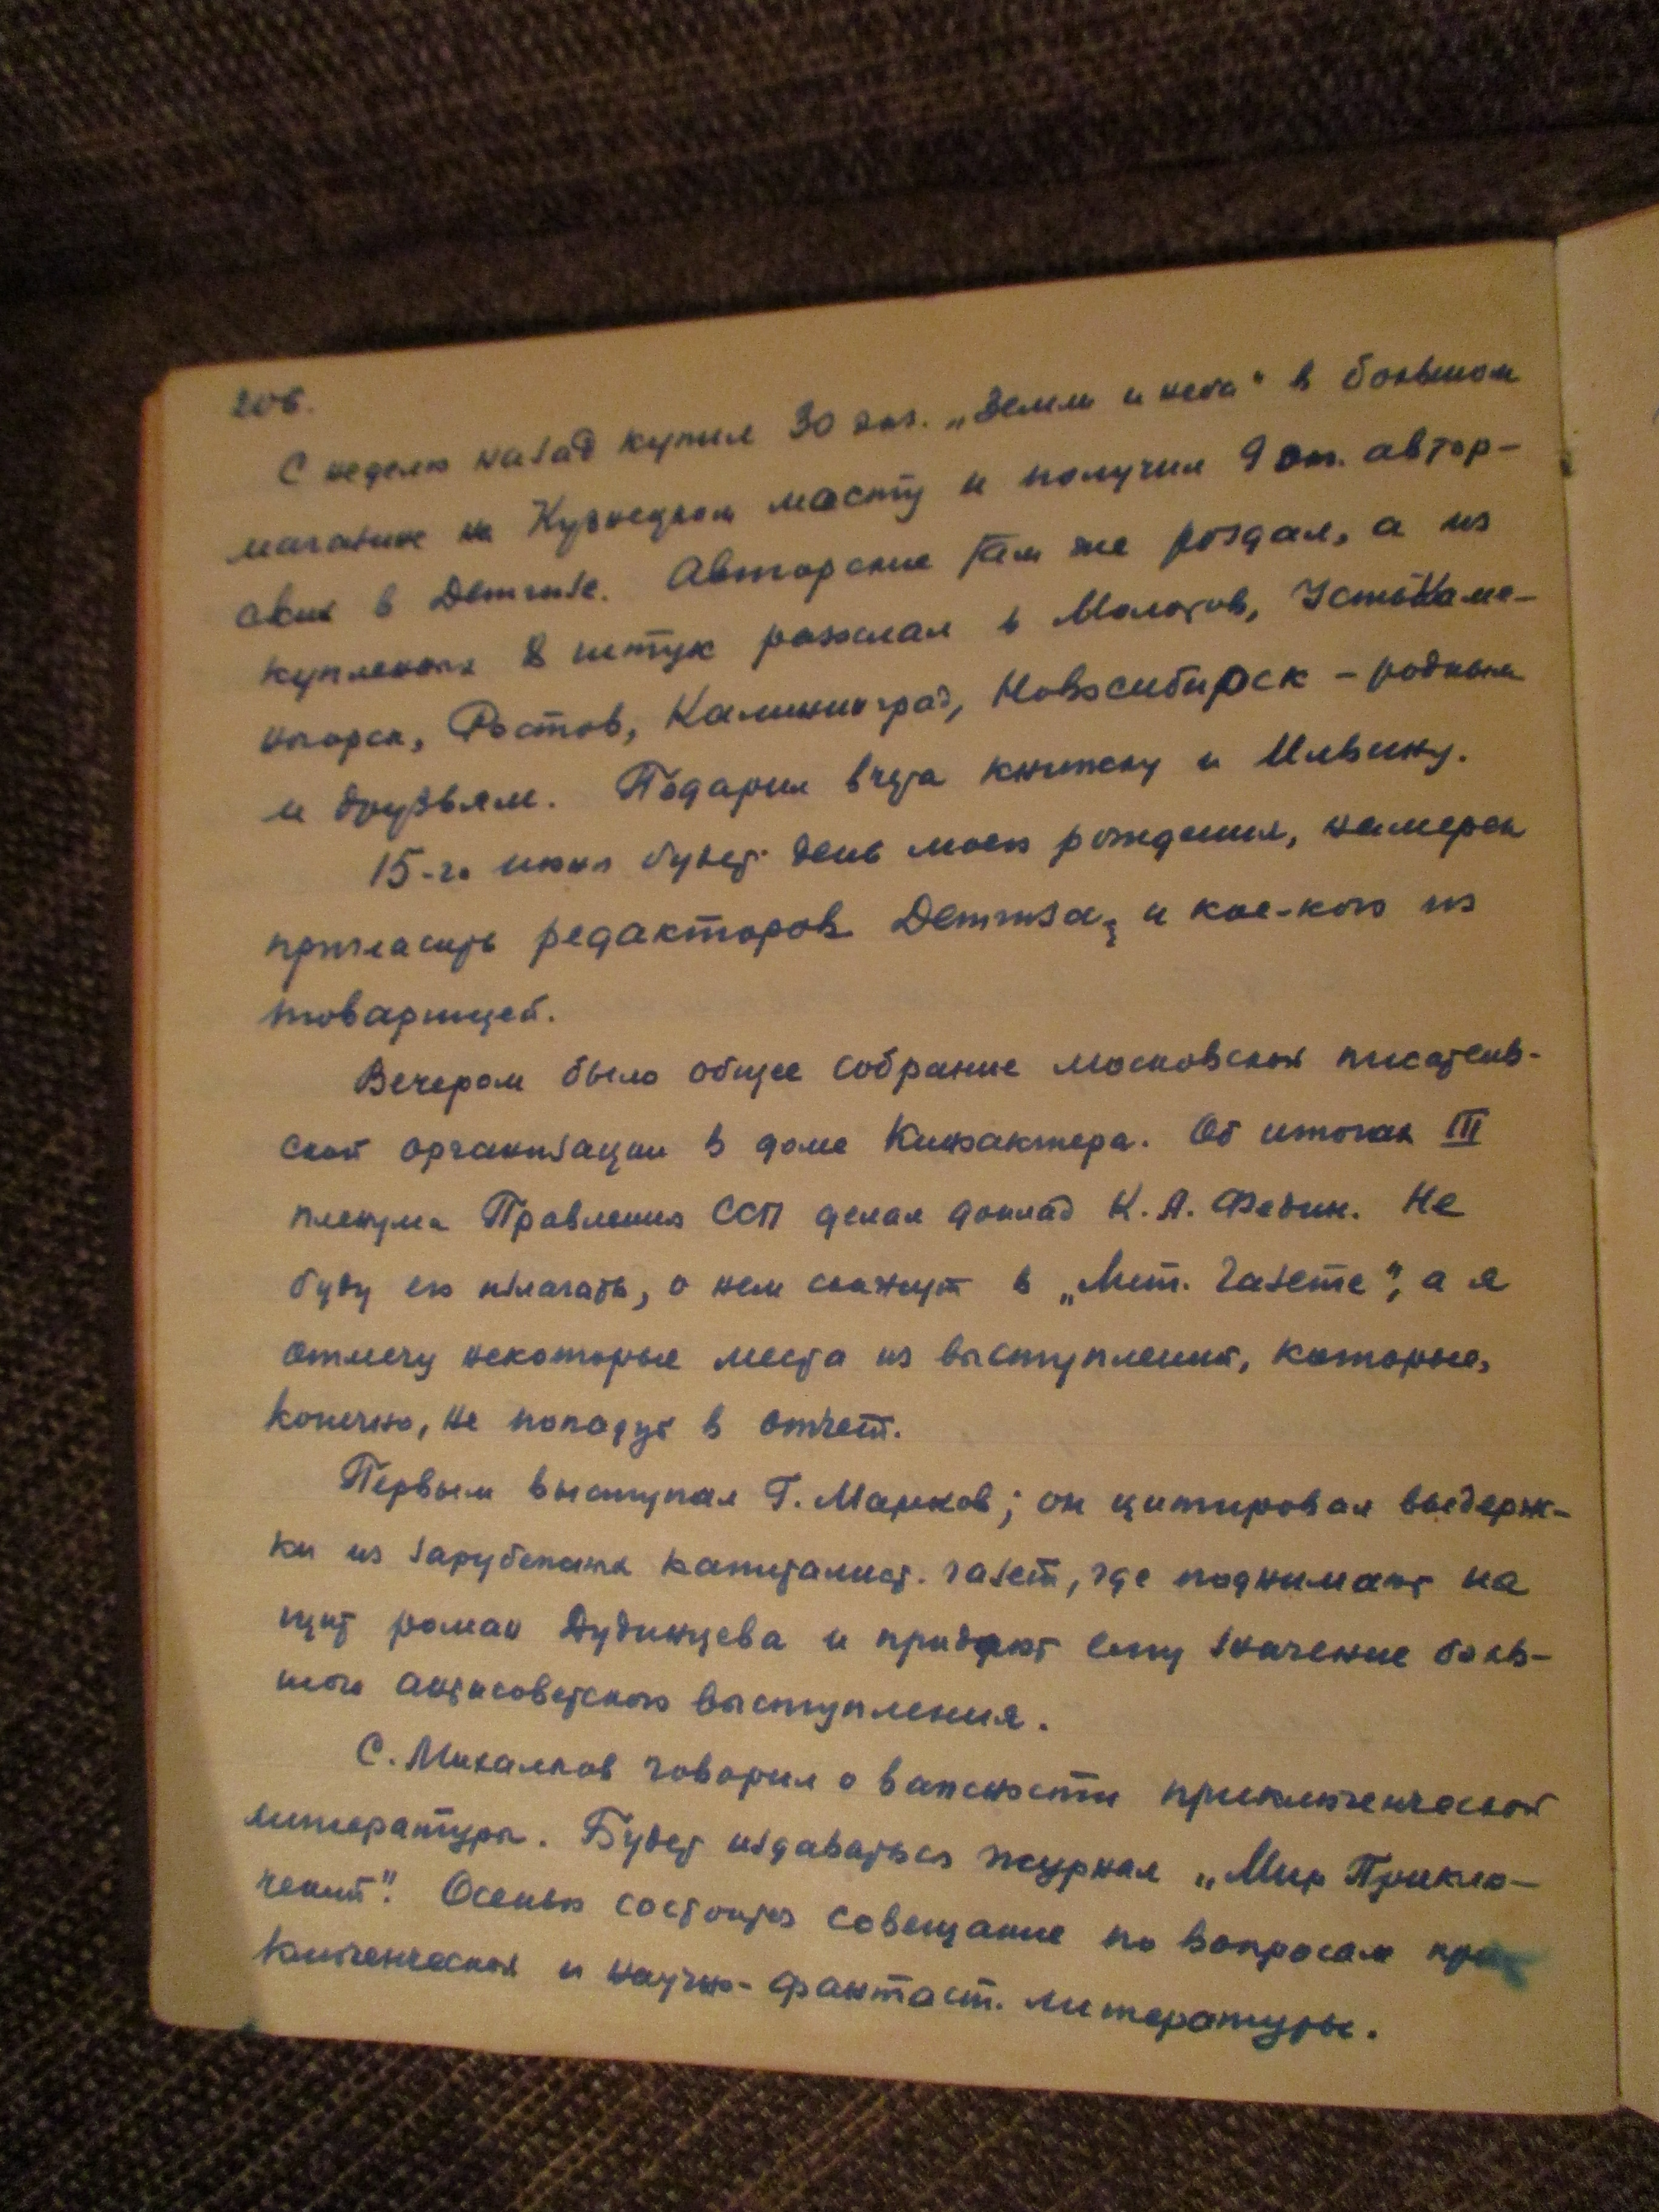 206.
С неделю назад купил 30 экз. „Земли и неба“ в большом
магазине на Кузнецком мосту и получил 9 эк. автор-
ских в Детгизе. Авторские там же роздал, а из
купленных 8 штук разослал в Молотов, Усть-Каме-
ногорск, Ростов, Калининград, Новосибирск – родным
и друзьям. Подарил вчера книжку и Ильину.
15-го июня будет день моего рождения, намерен
пригласить редакторов Детгиза, и кое-кого из
товарищей.
Вечером было общее собрание московской писатель-
ской организации в доме Киноактера. Об итогах III
пленума Правления ССП делал доклад К. А. Федин. Не
буду его излагать, о нем скажут в „Лит. Газете“, а я
отмечу некоторые места из выступлений, которые,
конечно, не попадут в отчет.
Первым выступал Г. Марков; он цитировал выдерж-
ки из зарубежных капиталист. газет, где поднимают на
щит роман Дудинцева и придают ему значение боль-
шого антисоветского выступления.
С. Михалков говорил о важности приключенческой
литературы. Будет издаваться журнал „Мир Приклю-
чений“. Осенью состоится совещание по вопросам при-
ключенческой и научно-фантаст. литературы.